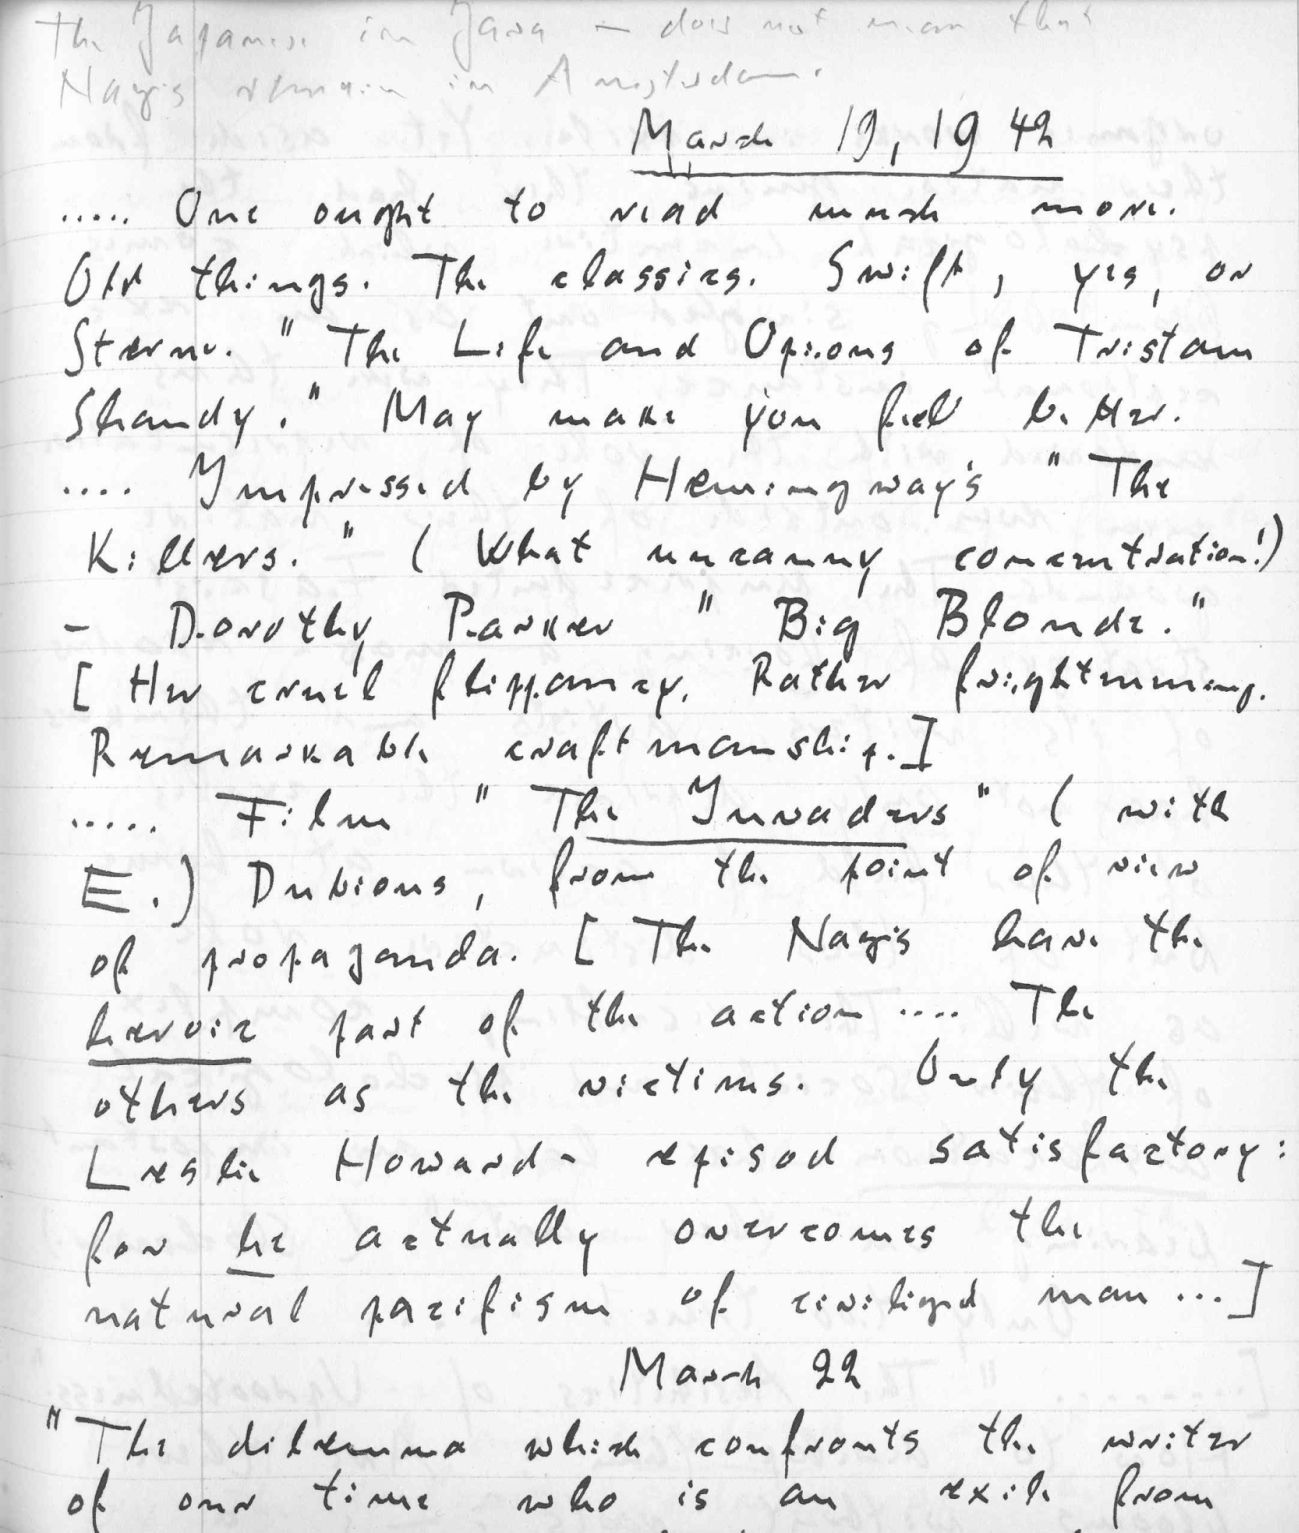 The Japanese in Java – does not mean that
Nazis remain in Amsterdam.
March 19, 1942
..... One ought to read much more.
Old things. The classics. Swift, yes, or
Sterne. "The Life and Opions of Tristam
Shandy." May make you feel better.
.... Impressed by Hemingway's "The
Killers." (What uncanny concentration!)
– Dorothy Parker "Big Blonde."
[Her cruel flippancy. Rather frightening.
Remarkable craftmanship.]
..... Film "The Invaders" (with
E.) Dubious, from the point of view
of propaganda. [The Nazis have the
heroic part of the action .... The
others as the victims. Only the
Leslie Howard-episod satisfactory:
for he actually overcomes the
natural pacifism of civilized man ...]
March 22
"The dilemma which confronts the writer
of our time who is an exile from